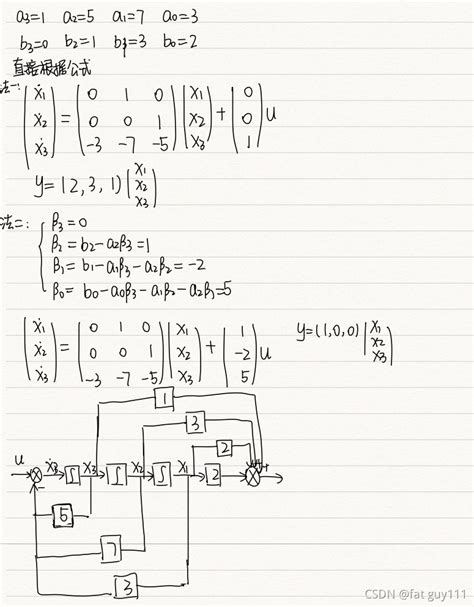 a₃=1 a₂=5 a₁=7 a₀=3
b₃=0 b₂=1 b₁=3 b₀=2
直接根据公式
法一:
(ẋ₁ x₂ ẋ₃) = (0 1 0; 0 0 1; -3 -7 -5)(x₁ x₂ x₃) + (0 0 1)u
y=(2,3,1)(x₁ x₂ x₃)
法二:
β₃=0
β₂=b₂-a₂β₃=1
β₁=b₁-a₁β₃-a₂β₂=-2
β₀=b₀-a₀β₃-a₁β₂-a₂β₁=5
(ẋ₁ ẋ₂ ẋ₃) = (0 1 0; 0 0 1; -3 -7 -5)(x₁ x₂ x₃) + (1 -2 5)u y=(1,0,0)(x₁ x₂ x₃)
1
3
2
u ẋ₃ ∫ x₃ ∫ x₂ ∫ x₁ 2 +
-
5
7
3
CSDN @fat guy111